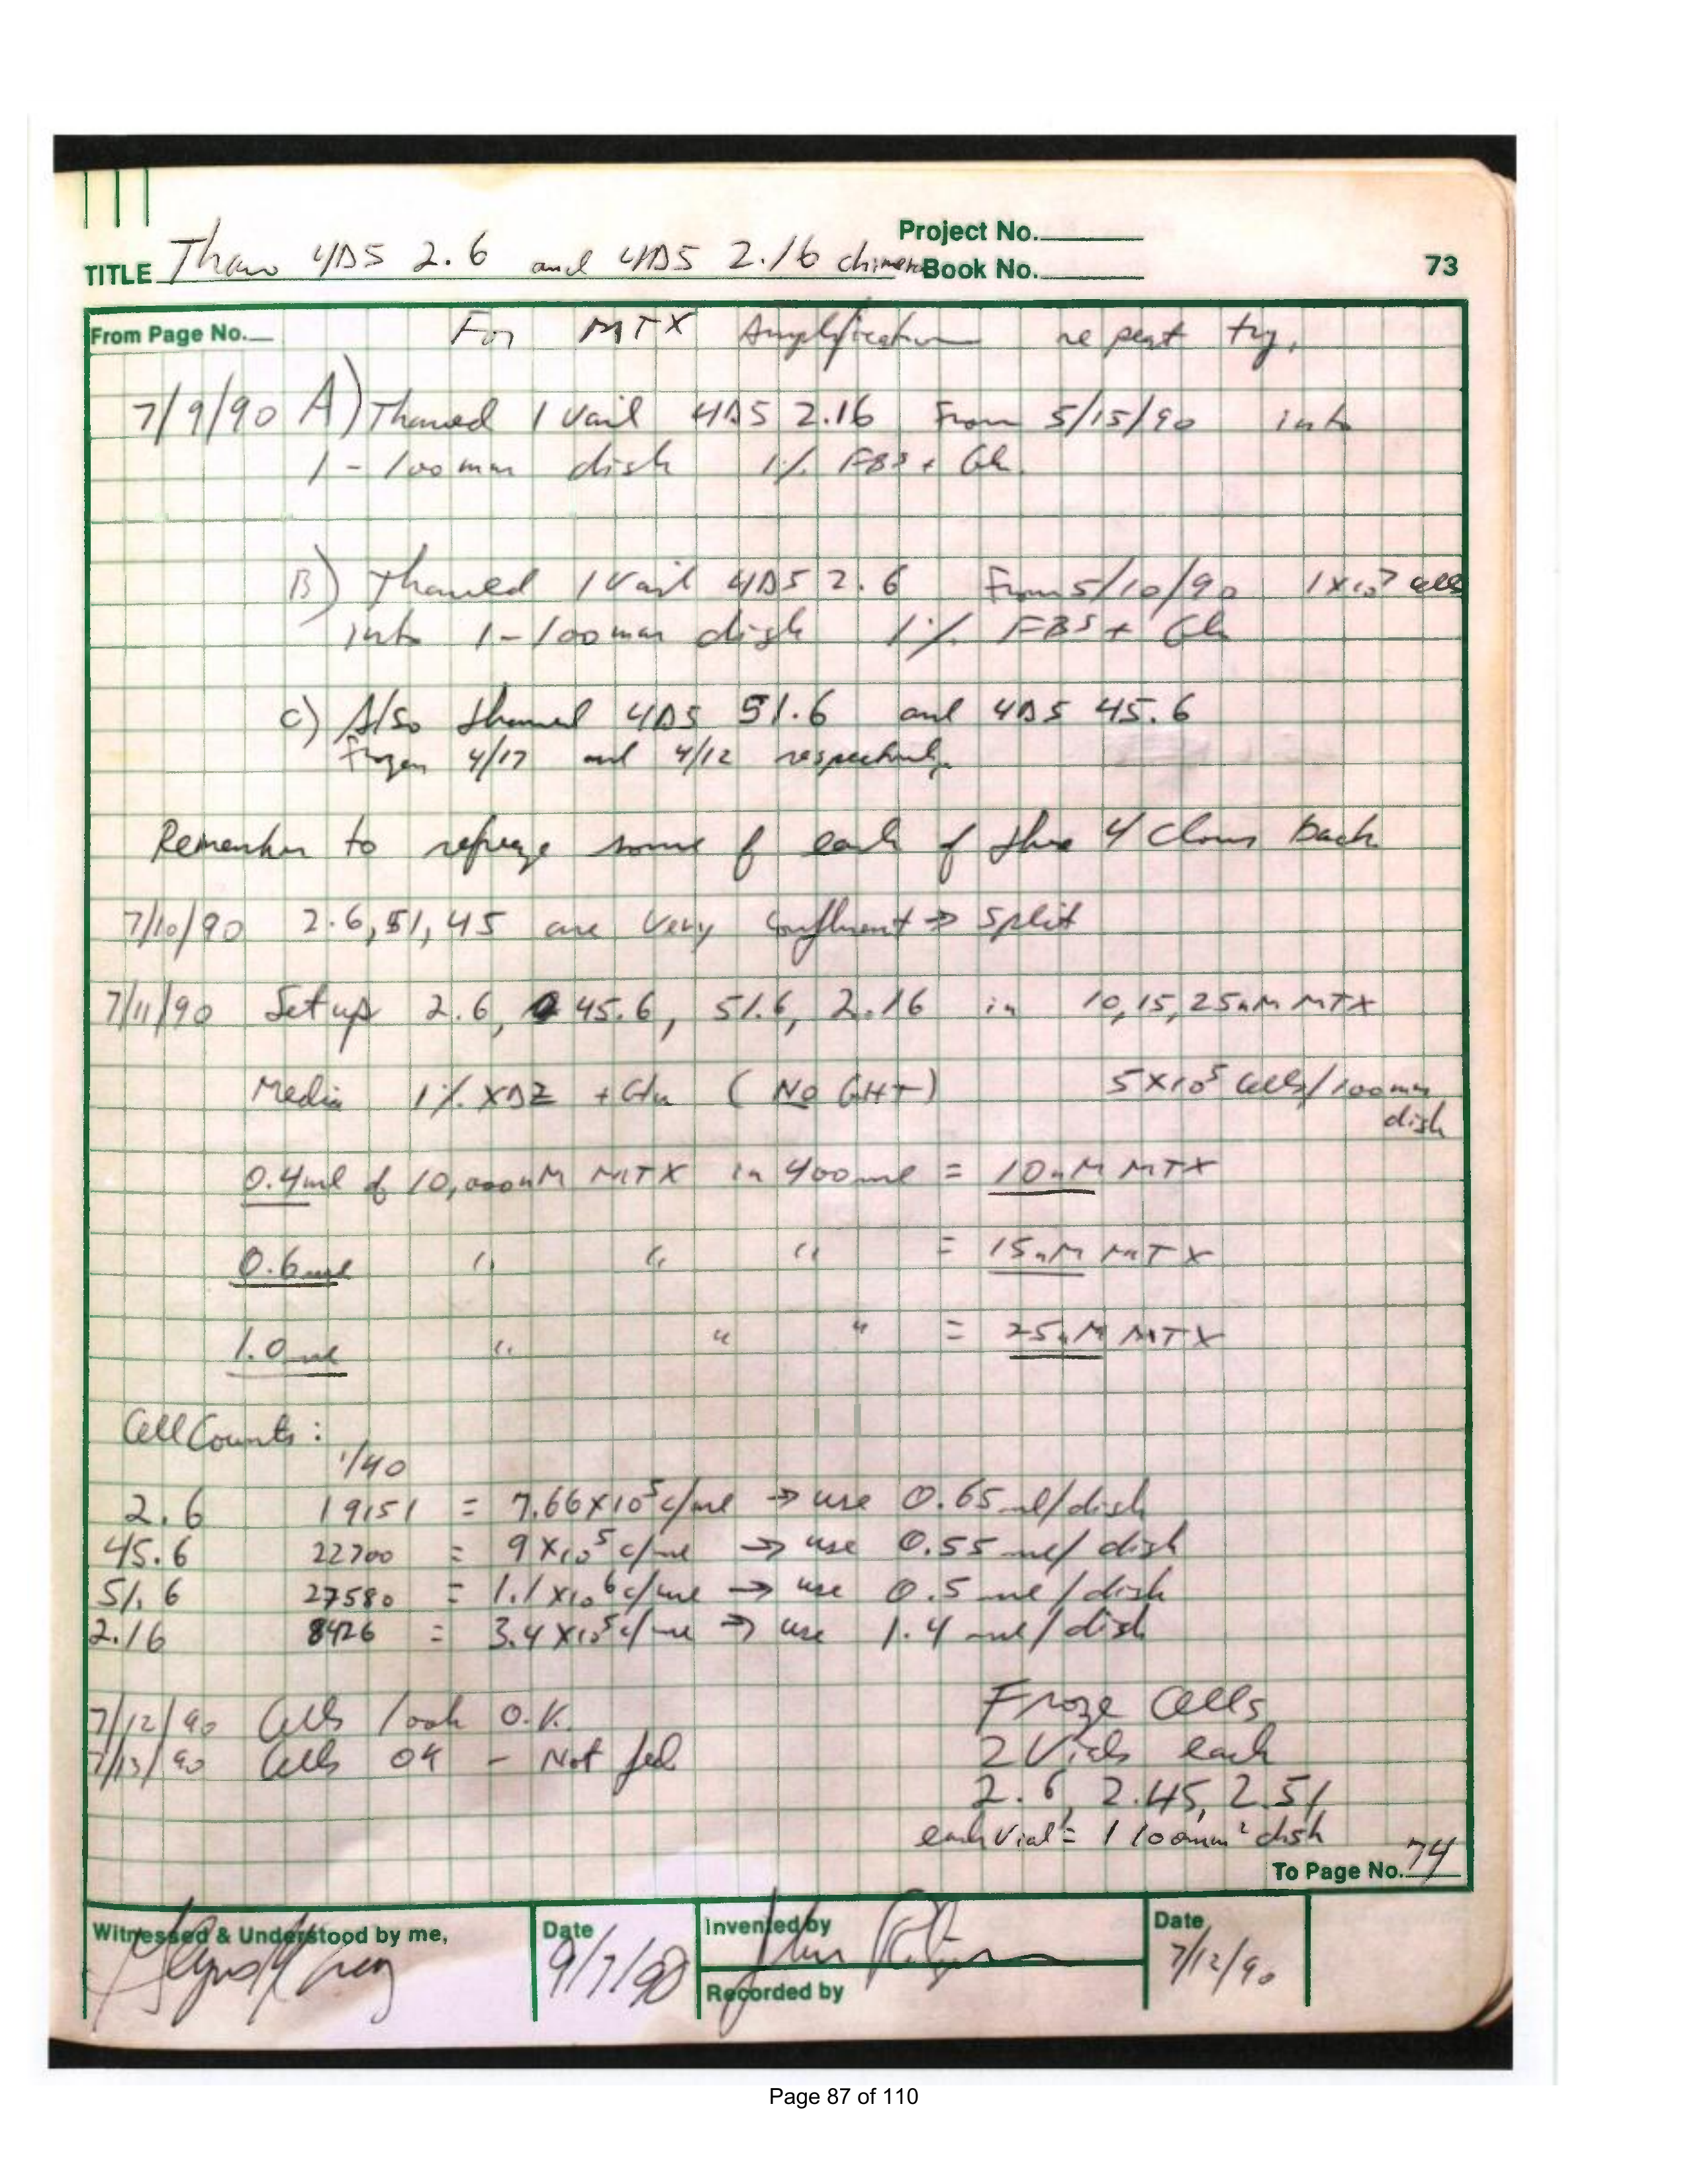 Project No.
TITLE Thaw 4D5 2.6 and 4D5 2.16 chimera Book No. 73
From Page No. For MTX Amplification repeat try.
7/9/90 A) Thawed 1 Vail 4D5 2.16 From 5/15/90 into
1-100mm dish 1% FBS + Gln
B) Thawed 1 Vail 4D5 2.6 From 5/10/90 1x10⁷ cells
into 1-100mm dish 1% FBS + Gln
C) Also thawed 4D5 51.6 and 4D5 45.6
Frozen 4/17 and 4/12 respectively.
Remember to refreeze some of each of these 4 clones back
7/10/90 2.6, 51, 45 are very confluent → split
7/11/90 Set up 2.6, 45.6, 51.6, 2.16 in 10, 15, 25nM MTX
Media 1% XDZ + Gln (No GHT) 5x10⁵ cells/100mm
dish
0.4ml of 10,000nM MTX in 400ml = 10nM MTX
0.6ml " " " = 15nM MTX
1.0ml " " " = 25nM MTX
Cell Counts:
1/40
2.6 19151 = 7.66x10⁵ c/ml → use 0.65ml/dish
45.6 22700 = 9x10⁵ c/ml → use 0.55 ml/dish
51.6 27580 = 1.1x10⁶ c/ml → use 0.5 ml/dish
2.16 8426 = 3.4x10⁵ c/ml → use 1.4 ml/dish
7/12/90 Cells look O.K.
7/13/90 Cells OK - Not fed
Froze Cells
2 Vials each
2.6, 2.45, 2.51
each vial = 1 100mm² dish
To Page No. 74
Witnessed & Understood by me,
Date
9/7/90
Invented by
Recorded by
Date
7/12/90
Page 87 of 110